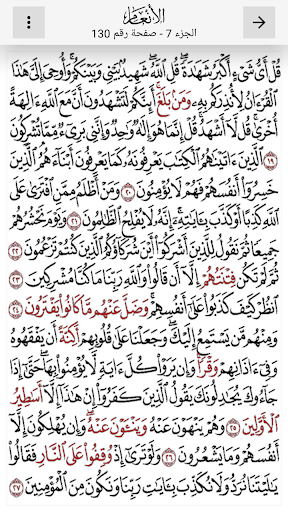 الأنعام
الجزء 7 - صفحة رقم 130
قُلْ أَيُّ شَيْءٍ أَكْبَرُ شَهَٰدَةً ۖ قُلِ ٱللَّهُ ۖ شَهِيدٌۢ بَيْنِي وَبَيْنَكُمْ ۚ وَأُوحِيَ إِلَيَّ هَٰذَا
ٱلْقُرْءَانُ لِأُنذِرَكُم بِهِۦ وَمَنۢ بَلَغَ ۚ أَئِنَّكُمْ لَتَشْهَدُونَ أَنَّ مَعَ ٱللَّهِ ءَالِهَةً
أُخْرَىٰ ۚ قُل لَّآ أَشْهَدُ ۚ قُلْ إِنَّمَا هُوَ إِلَٰهٌ وَٰحِدٌ وَإِنَّنِي بَرِيٓءٌ مِّمَّا تُشْرِكُونَ
١٩ ٱلَّذِينَ ءَاتَيْنَٰهُمُ ٱلْكِتَٰبَ يَعْرِفُونَهُۥ كَمَا يَعْرِفُونَ أَبْنَآءَهُمُ ۘ ٱلَّذِينَ
خَسِرُوٓا۟ أَنفُسَهُمْ فَهُمْ لَا يُؤْمِنُونَ ٢٠ وَمَنْ أَظْلَمُ مِمَّنِ ٱفْتَرَىٰ عَلَى
ٱللَّهِ كَذِبًا أَوْ كَذَّبَ بِـَٔايَٰتِهِۦٓ ۗ إِنَّهُۥ لَا يُفْلِحُ ٱلظَّٰلِمُونَ ٢١ وَيَوْمَ نَحْشُرُهُمْ
جَمِيعًا ثُمَّ نَقُولُ لِلَّذِينَ أَشْرَكُوٓا۟ أَيْنَ شُرَكَآؤُكُمُ ٱلَّذِينَ كُنتُمْ تَزْعُمُونَ ٢٢
ثُمَّ لَمْ تَكُن فِتْنَتُهُمْ إِلَّآ أَن قَالُوا۟ وَٱللَّهِ رَبِّنَا مَا كُنَّا مُشْرِكِينَ ٢٣
ٱنظُرْ كَيْفَ كَذَبُوا۟ عَلَىٰٓ أَنفُسِهِمْ ۚ وَضَلَّ عَنْهُم مَّا كَانُوا۟ يَفْتَرُونَ ٢٤
وَمِنْهُم مَّن يَسْتَمِعُ إِلَيْكَ ۖ وَجَعَلْنَا عَلَىٰ قُلُوبِهِمْ أَكِنَّةً أَن يَفْقَهُوهُ
وَفِيٓ ءَاذَانِهِمْ وَقْرًا ۚ وَإِن يَرَوْا۟ كُلَّ ءَايَةٍ لَّا يُؤْمِنُوا۟ بِهَا ۚ حَتَّىٰٓ إِذَا
جَآءُوكَ يُجَٰدِلُونَكَ يَقُولُ ٱلَّذِينَ كَفَرُوٓا۟ إِنْ هَٰذَآ إِلَّآ أَسَٰطِيرُ
ٱلْأَوَّلِينَ ٢٥ وَهُمْ يَنْهَوْنَ عَنْهُ وَيَنْـَٔوْنَ عَنْهُ ۖ وَإِن يُهْلِكُونَ إِلَّآ
أَنفُسَهُمْ وَمَا يَشْعُرُونَ ٢٦ وَلَوْ تَرَىٰٓ إِذْ وُقِفُوا۟ عَلَى ٱلنَّارِ فَقَالُوا۟
يَٰلَيْتَنَا نُرَدُّ وَلَا نُكَذِّبَ بِـَٔايَٰتِ رَبِّنَا وَنَكُونَ مِنَ ٱلْمُؤْمِنِينَ ٢٧